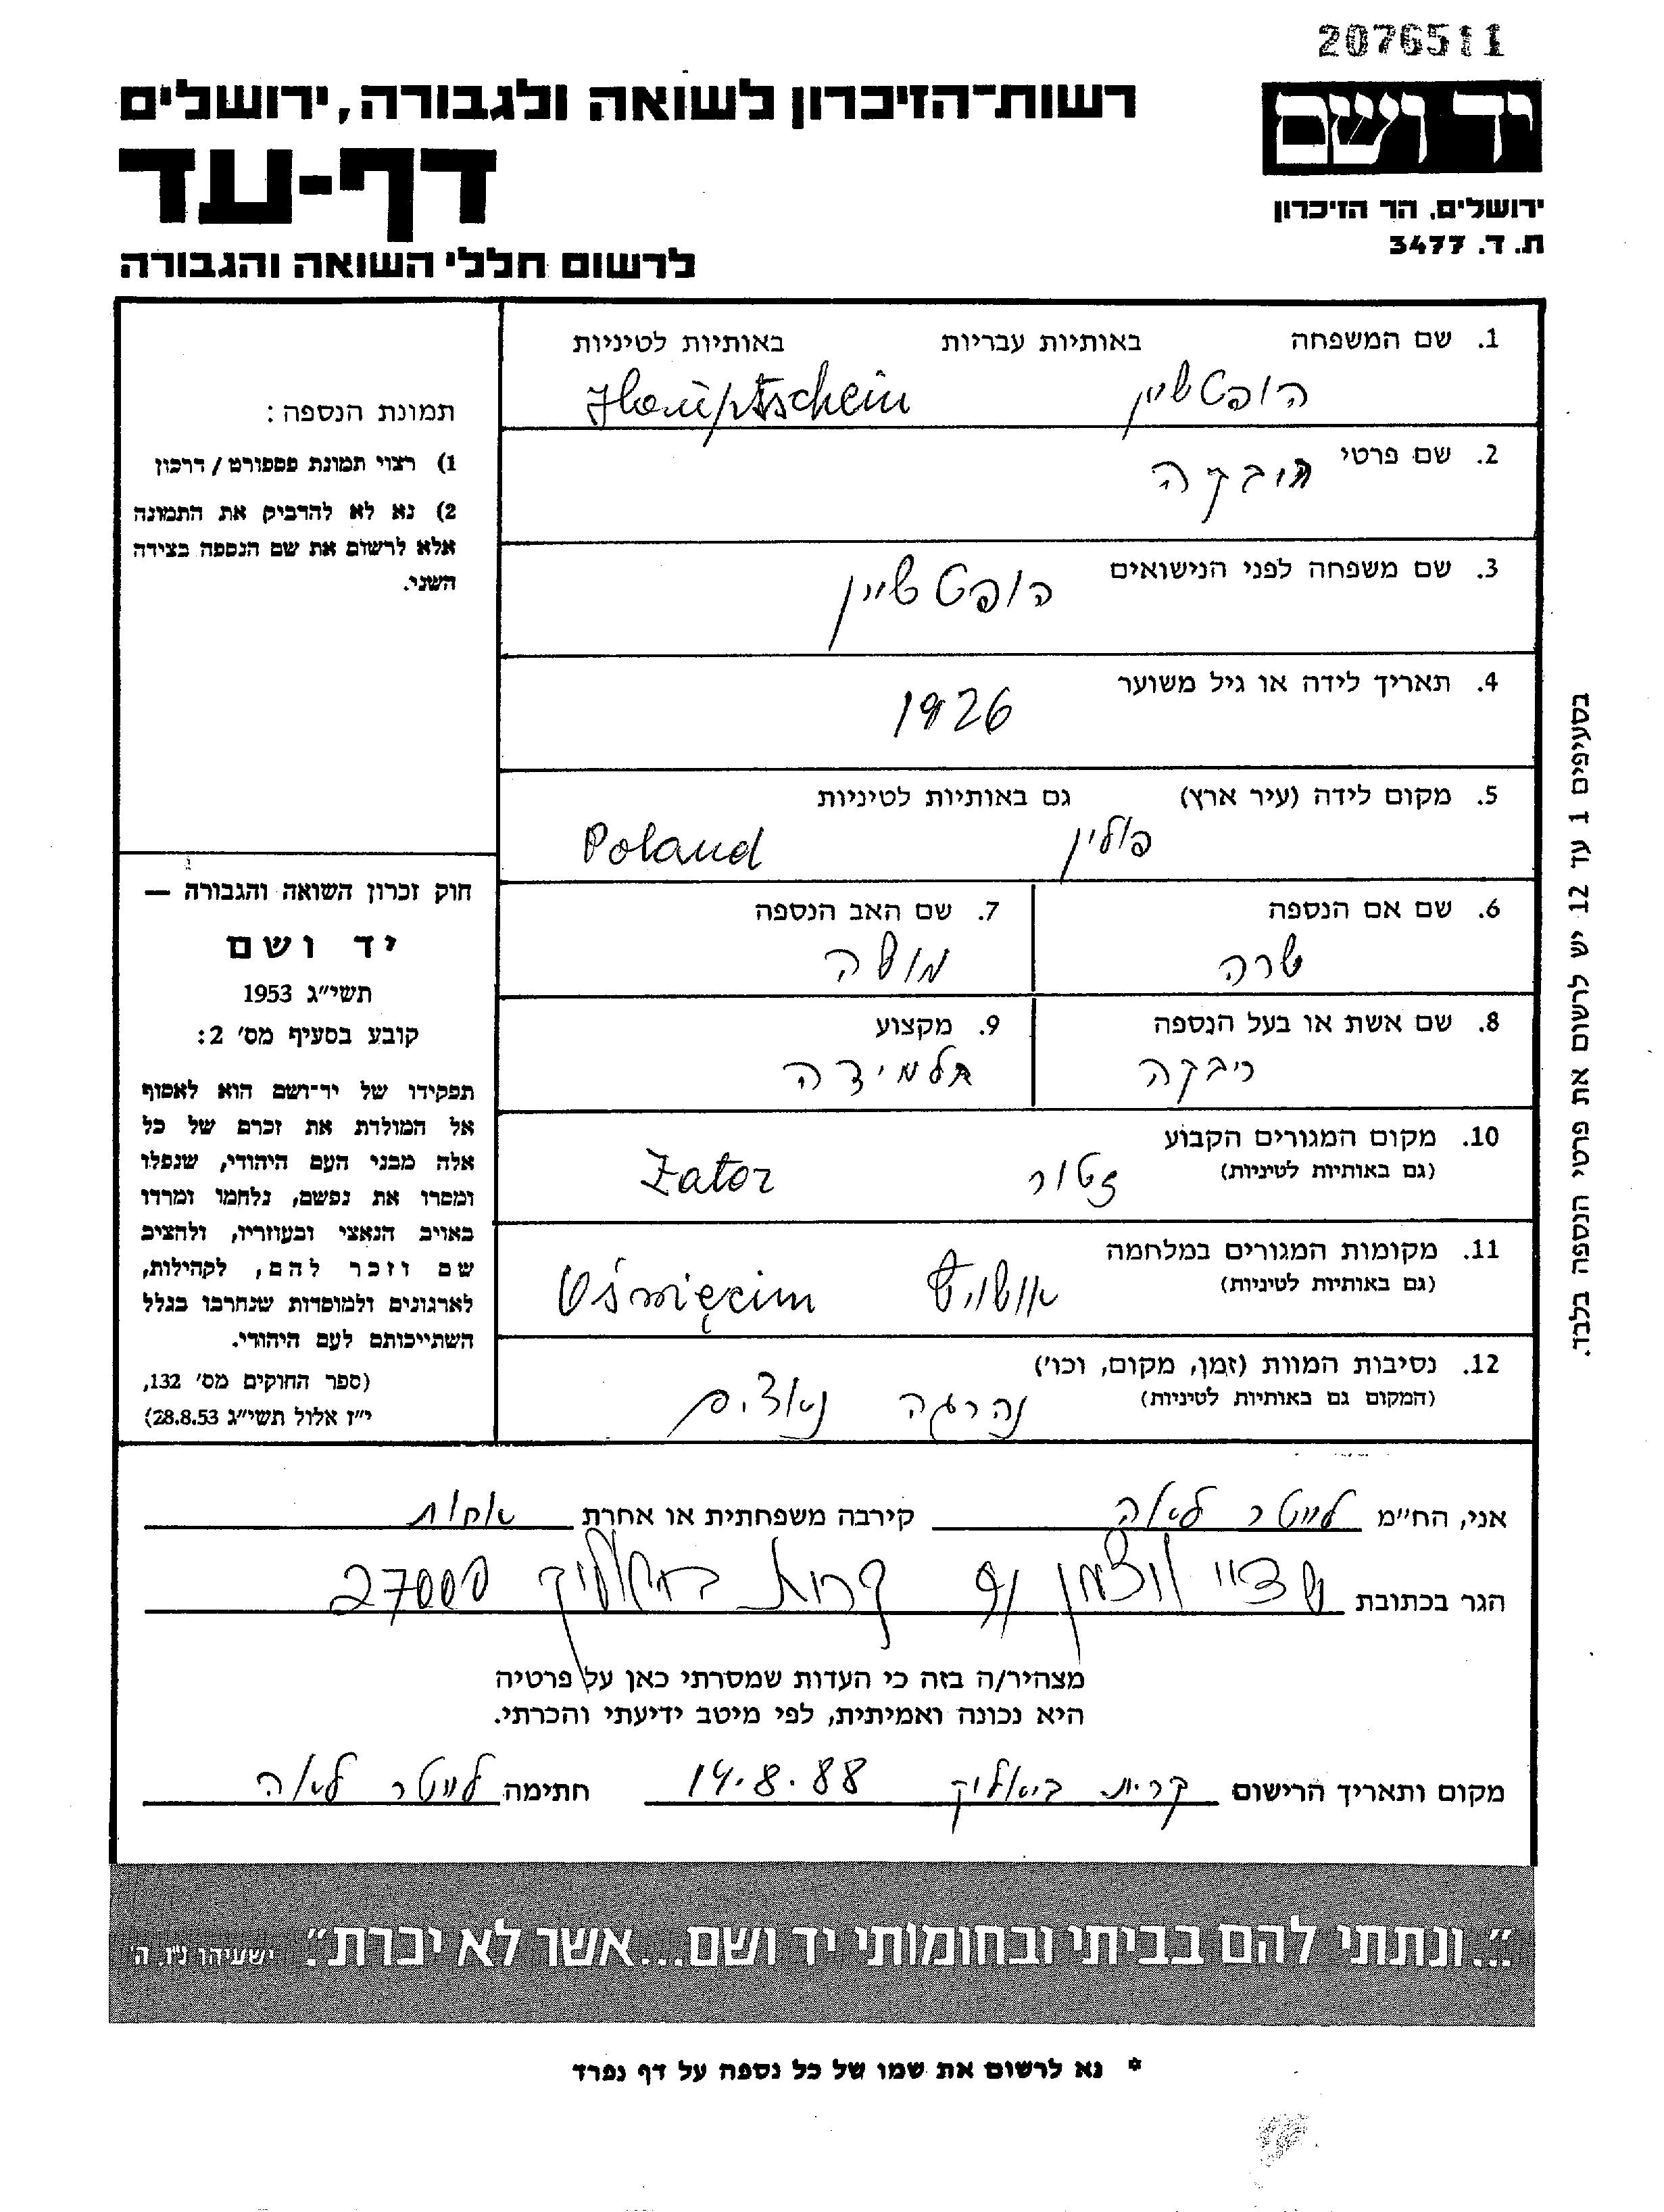 2076511
רשות־הזיכרון לשואה ולגבורה, ירושלים
יד ושם
דף-עד
ירושלים, הר הזיכרון
ת. ד. 3477
לרשום חללי השואה והגבורה
1. שם המשפחה באותיות עבריות באותיות לטיניות
הופטשיין Hauptschein
2. שם פרטי רבקה
3. שם משפחה לפני הנישואים הופטשיין
4. תאריך לידה או גיל משוער
1926
5. מקום לידה (עיר ארץ) גם באותיות לטיניות
פולין Poland
6. שם אם הנספה
שרה
7. שם האב הנספה
משה
8. שם אשת או בעל הנספה
ריבקה
9. מקצוע
תלמידה
10. מקום המגורים הקבוע
(גם באותיות לטיניות) זטור Zator
11. מקומות המגורים במלחמה
(גם באותיות לטיניות) אושויץ Oświęcim
12. נסיבות המוות (זמן, מקום, וכו')
(המקום גם באותיות לטיניות) נהרגה נאצים
תמונת הנספה:
1) רצוי תמונת פספורט / דרכון
2) נא לא להדביק את התמונה
אלא לרשום את שם הנספה בצידה
השני.
חוק זכרון השואה והגבורה —
יד ושם
תשי"ג 1953
קובע בסעיף מס' 2:
תפקידו של יד־ושם הוא לאסוף
אל המולדת את זכרם של כל
אלה מבני העם היהודי, שנפלו
ומסרו את נפשם, נלחמו ומרדו
באויב הנאצי ובעוזריו, ולהציב
שם וזכר להם, לקהילות,
לארגונים ולמוסדות שנחרבו בגלל
השתייכותם לעם היהודי.
(ספר החוקים מס' 132,
י"ז אלול תשי"ג 28.8.53)
בסעיפים 1 עד 12 יש לרשום את פרטי הנספה בלבד.
אני, הח"מ לאה קירבה משפחתית או אחרת אחות
הגר בכתובת קרית ביאליק 27000
מצהיר/ה בזה כי העדות שמסרתי כאן על פרטיה
היא נכונה ואמיתית, לפי מיטב ידיעתי והכרתי.
מקום ותאריך הרישום קרית ביאליק 14.8.88 חתימה לאה
"..ונתתי להם בביתי ובחומותי יד ושם...אשר לא יכרת". ישעיהו נ"ו, ה'
* נא לרשום את שמו של כל נספה על דף נפרד